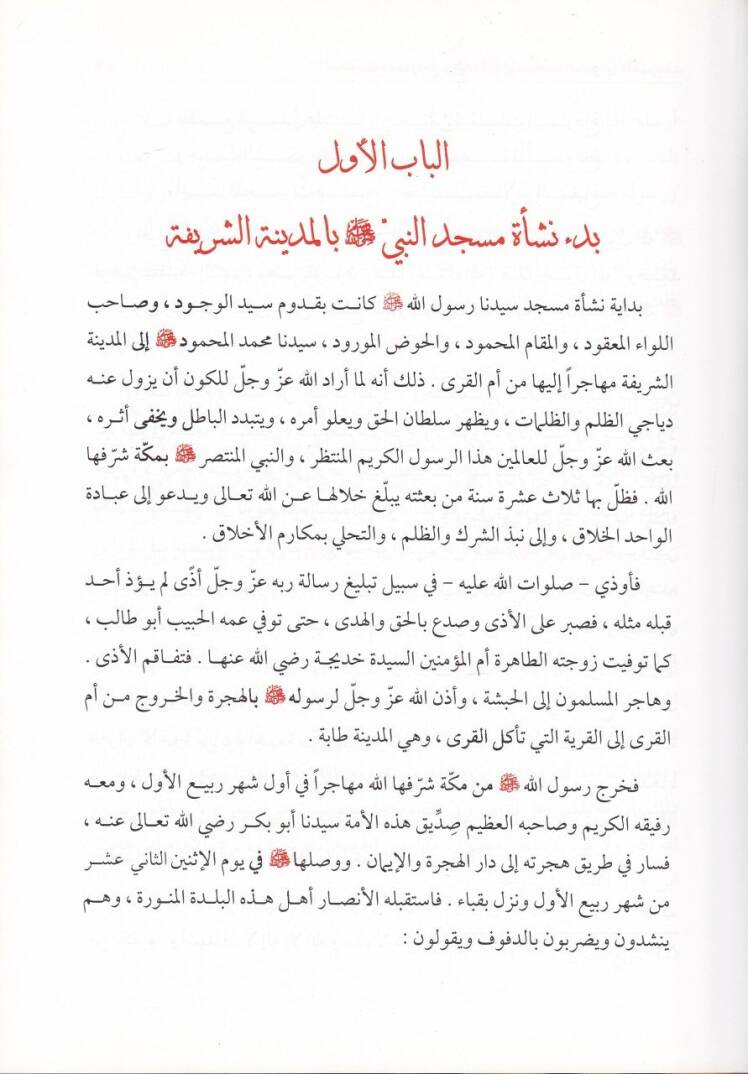 الباب الأول
بدء نشأة مسجد النبي ﷺ بالمدينة الشريفة
بداية نشأة مسجد سيدنا رسول الله ﷺ كانت بقدوم سيد الوجود ، وصاحب
اللواء المعقود ، والمقام المحمود ، والحوض المورود ، سيدنا محمد المحمود ﷺ إلى المدينة
الشريفة مهاجراً إليها من أم القرى . ذلك أنه لما أراد الله عزّ وجلّ للكون أن يزول عنه
دياجي الظلم والظلمات ، ويظهر سلطان الحق ويعلو أمره ، ويتبدد الباطل ويخفى أثره ،
بعث الله عزّ وجلّ للعالمين هذا الرسول الكريم المنتظر ، والنبي المنتصر ﷺ بمكّة شرّفها
الله . فظلّ بها ثلاث عشرة سنة من بعثته يبلّغ خلالها عن الله تعالى ويدعو إلى عبادة
الواحد الخلاق ، وإلى نبذ الشرك والظلم ، والتحلي بمكارم الأخلاق .
فأوذي – صلوات الله عليه – في سبيل تبليغ رسالة ربه عزّ وجلّ أذًى لم يؤذ أحد
قبله مثله ، فصبر على الأذى وصدع بالحق والهدى ، حتى توفي عمه الحبيب أبو طالب ،
كما توفيت زوجته الطاهرة أم المؤمنين السيدة خديجة رضي الله عنها . فتفاقم الأذى .
وهاجر المسلمون إلى الحبشة ، وأذن الله عزّ وجلّ لرسوله ﷺ بالهجرة والخروج من أم
القرى إلى القرية التي تأكل القرى ، وهي المدينة طابة .
فخرج رسول الله ﷺ من مكّة شرّفها الله مهاجراً في أول شهر ربيع الأول ، ومعه
رفيقه الكريم وصاحبه العظيم صِدِّيق هذه الأمة سيدنا أبو بكر رضي الله تعالى عنه ،
فسار في طريق هجرته إلى دار الهجرة والإيمان . ووصلها ﷺ في يوم الإثنين الثاني عشر
من شهر ربيع الأول ونزل بقباء . فاستقبله الأنصار أهل هذه البلدة المنورة ، وهم
ينشدون ويضربون بالدفوف ويقولون :